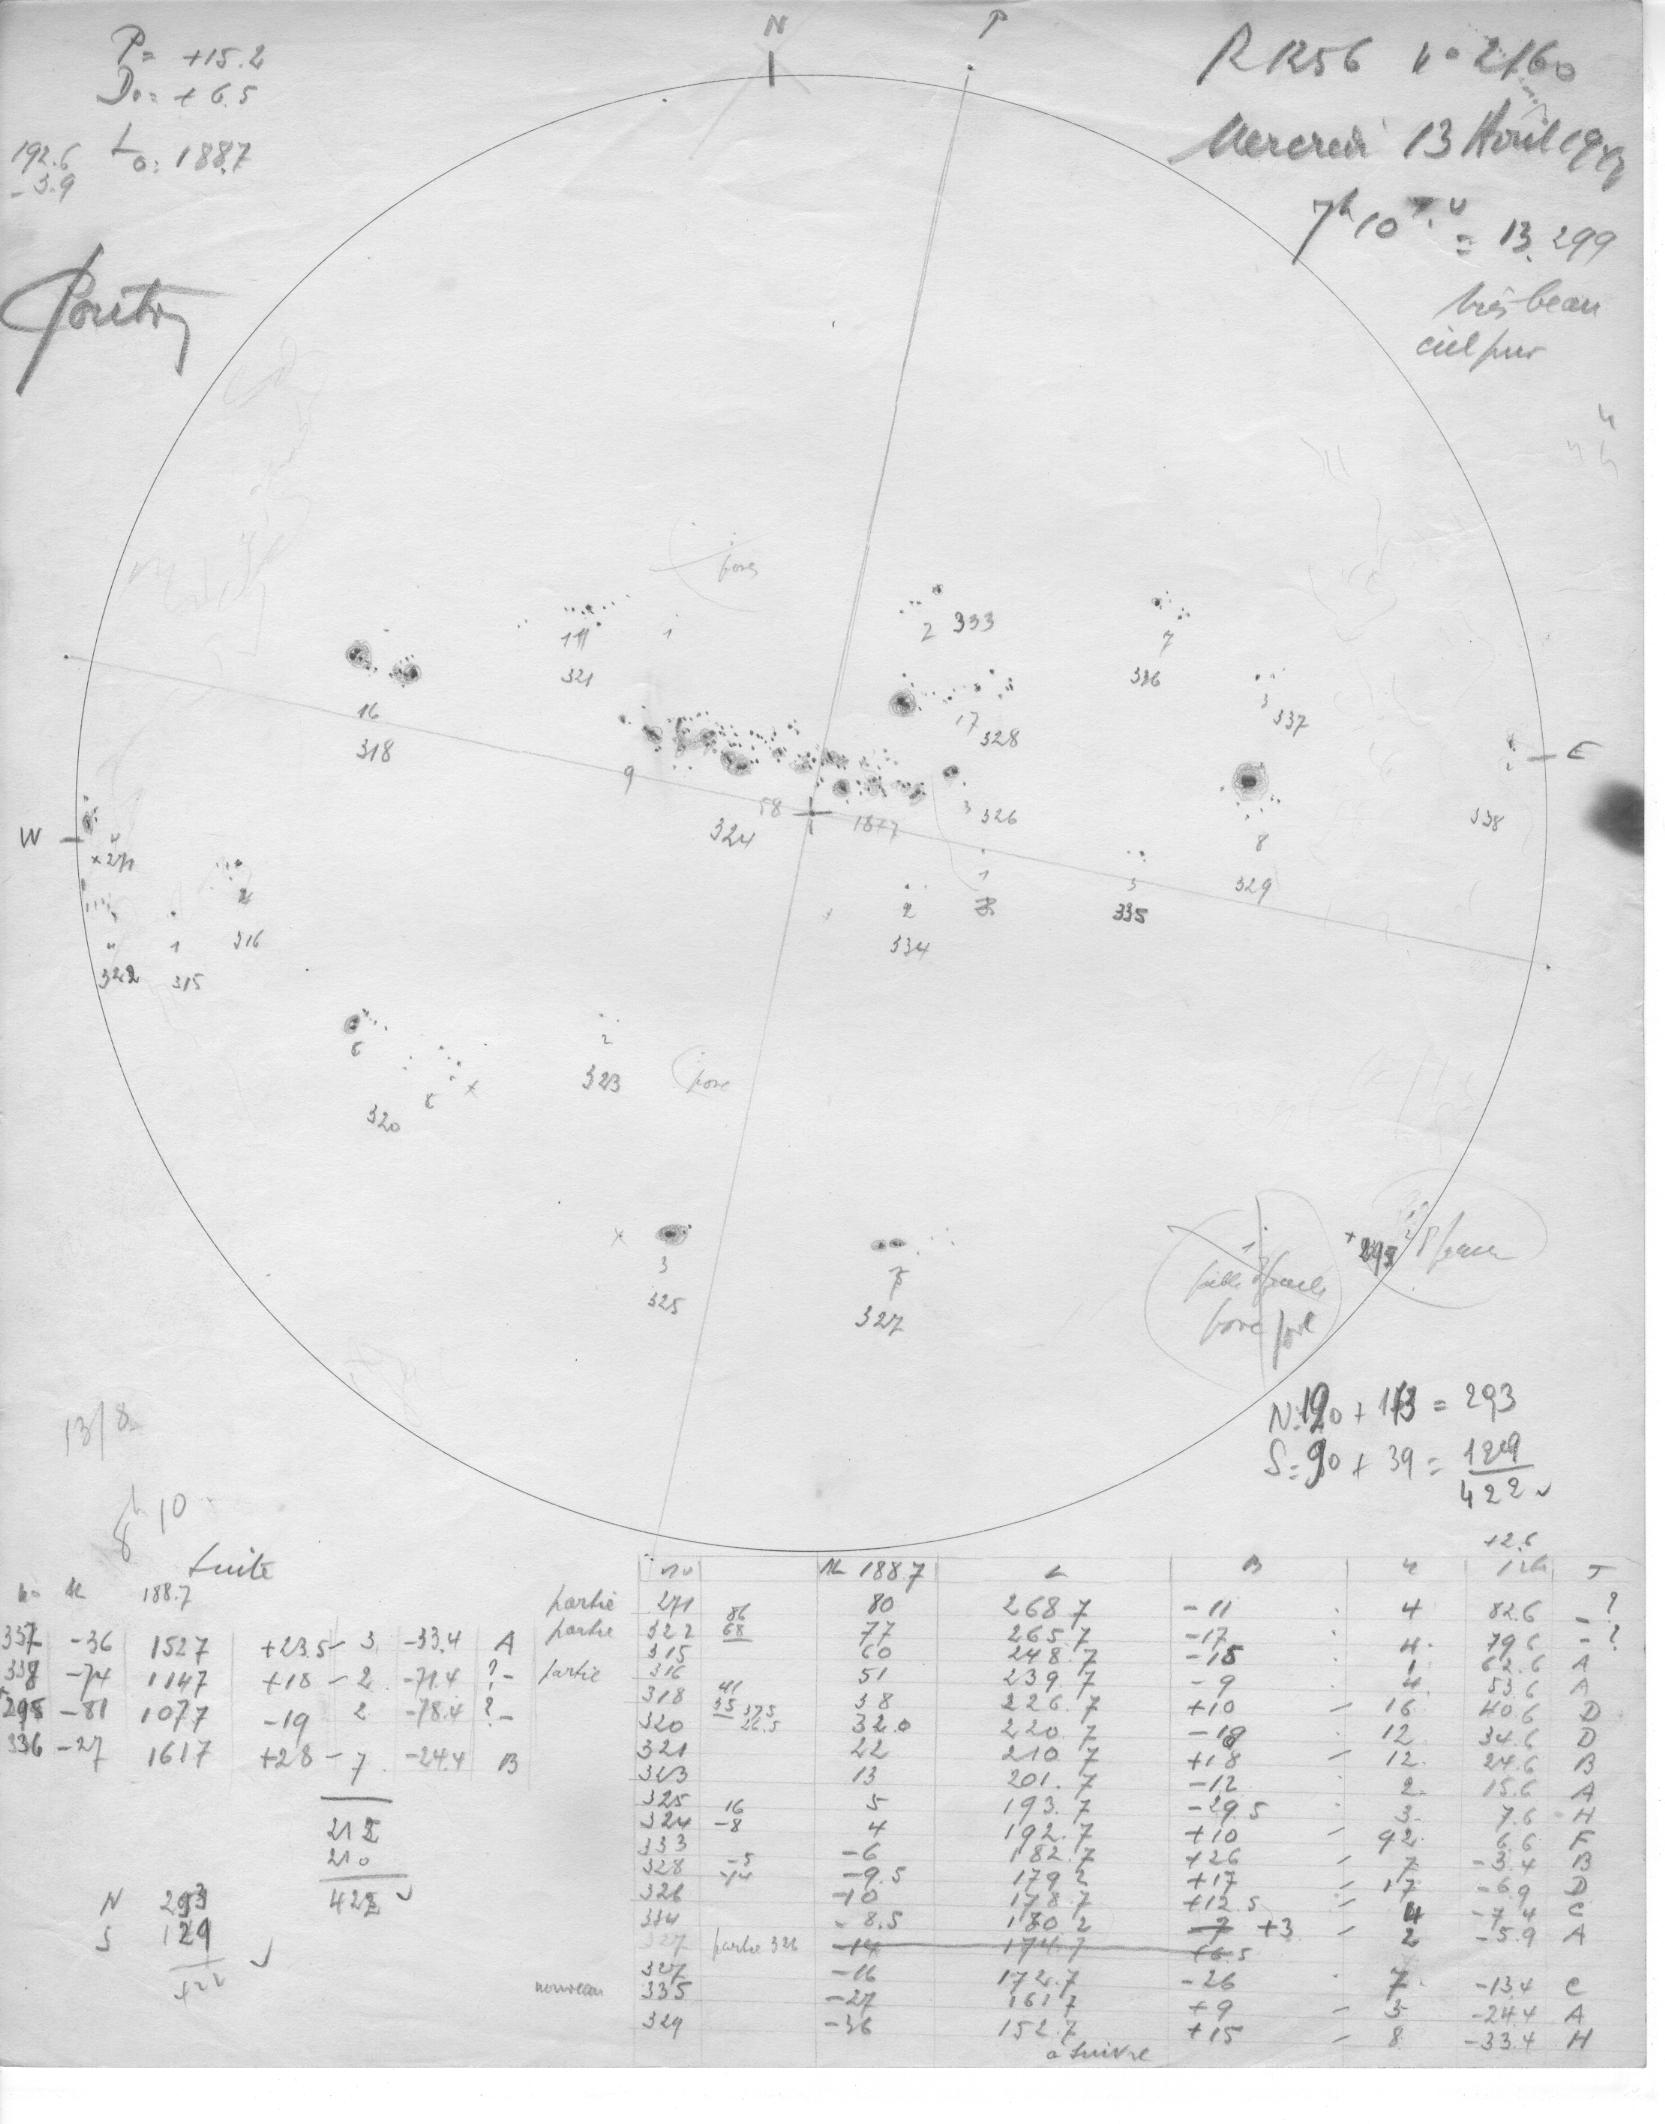 P= +15.2
D₀= +6.5
L₀= 188.7
192.6
-3.9
N
P
R 1256 n° 2160
Mercredi 13 Août 194
7h 10 T.U = 13.299
très beau
ciel pur
pores
111
321
1
2 333
7
336
16
318
17
328
3
337
E
9
58
324
1877
3
326
8
329
338
W
4
×271
4
322
1
315
4
316
1
2
334
3
335
6
6
320
2
323
pore
3
325
7
327
1
295
N: 120 + 173 = 293
S = 90 + 39 = 129
422
13/8
8h 10
Suite
n° M 188.7
337 -36 152.7 +23.5 - 3 -33.4 A
338 -74 114.7 +18 - 2 -71.4 ? -
295 -81 107.7 -19 2 -78.4 ? -
336 -27 161.7 +28 - 7 -24.4 B
212
210
422
N 293
S 129
422
+2.6
n° M 188.7 L B T
partie 271 80 268.7 -11 4 82.6 - ?
partie 322 86 68 77 265.7 -17 4 79.6 - ?
315 60 248.7 -15 1 62.6 A
partie 316 51 239.7 -9 4 53.6 A
318 41 35 38 226.7 +10 - 16 40.6 D
320 37.5 26.5 32.0 220.7 -18 12 34.6 D
321 22 210.7 +18 - 12 24.6 B
323 13 201.7 -12 2 15.6 A
325 5 193.7 -29.5 3 7.6 H
324 16 -8 4 192.7 +10 - 92 6.6 F
333 -6 182.7 +26 - 7 -3.4 B
328 -5 -14 -9.5 179.2 +17 - 17 -6.9 D
326 -10 178.7 +12.5 - 4 -7.4 C
334 -8.5 180.2 -7 +3 - 2 -5.9 A
327 partie 326 -14 174.7 +6.5
327 -16 172.7 -26 7 -13.4 C
nouveau 335 -27 161.7 +9 - 3 -24.4 A
329 -36 152.7 +15 - 8 -33.4 H
à suivre